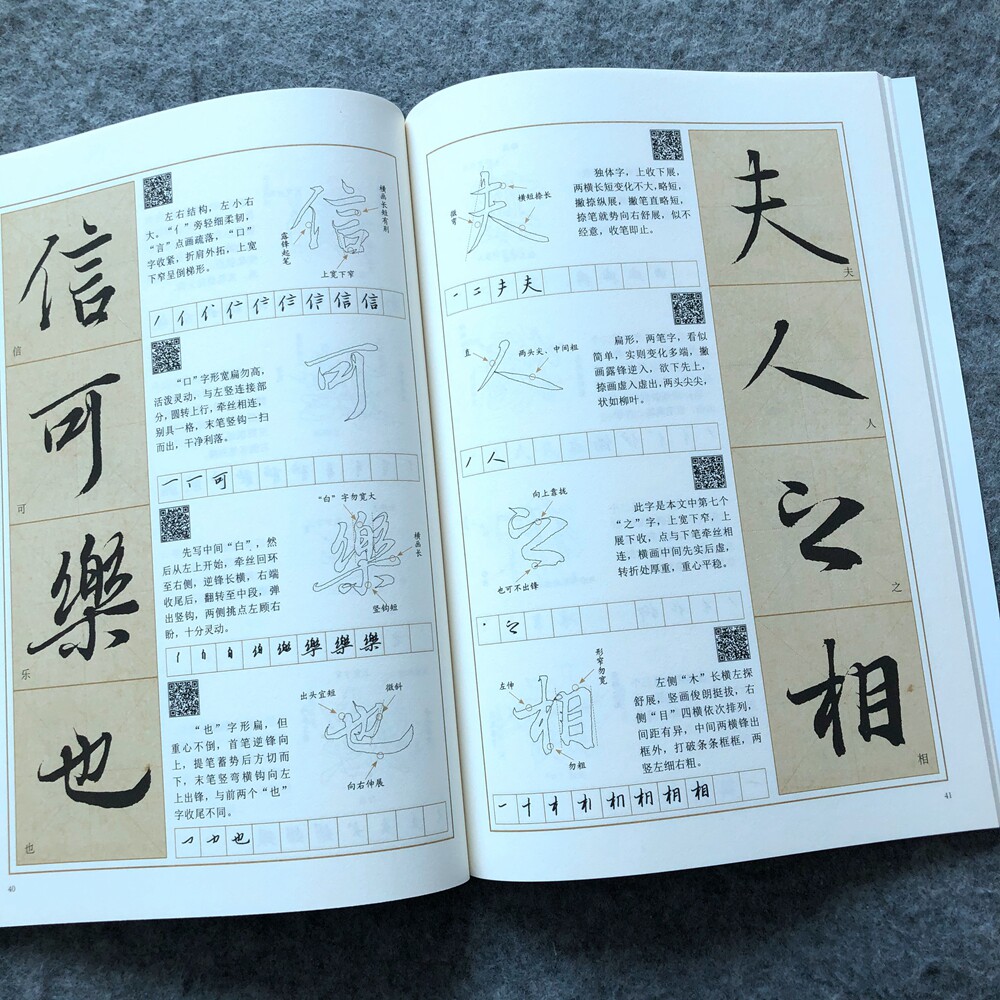 信
信
左右结构，左小右
大。“亻”旁轻细柔韧，
“言”点画疏落，“口”
字收紧，折肩外拓，上宽
下窄呈倒梯形。
信
横画长短有别
露锋起笔
上宽下窄
信
可
可
“口”字形宽扁勿高，
活泼灵动，与左竖连接部
分，圆转上行，牵丝相连，
别具一格，末笔竖钩一扫
而出，干净利落。
可
可
樂
乐
先写中间“白”，然
后从左上开始，牵丝回环
至右侧，逆锋长横，右端
收尾后，翻转至中段，弹
出竖钩，两侧挑点左顾右
盼，十分灵动。
“白”字勿宽大
樂
横画长
竖钩短
樂 樂 樂
也
也
“也”字形扁，但
重心不倒，首笔逆锋向
上，提笔蓄势后方切而
下，末笔竖弯横钩向左
上出锋，与前两个“也”
字收尾不同。
出头宜短
微斜
也
向右伸展
也
40
夫
横短捺长
微弯
独体字，上收下展，
两横长短变化不大，略短，
撇捺纵展，撇笔直略短，
捺笔就势向右舒展，似不
经意，收笔即止。
一 二 夫 夫
夫
夫
直
两头尖，中间粗
人
扁形，两笔字，看似
简单，实则变化多端，撇
画露锋逆入，欲下先上，
捺画虚入虚出，两头尖尖，
状如柳叶。
丿 人
人
人
向上靠拢
之
也可不出锋
此字是本文中第七个
“之”字，上宽下窄，上
展下收，点与下笔牵丝相
连，横画中间先实后虚，
转折处厚重，重心平稳。
丶 之
之
之
左伸
形窄勿宽
相
勿粗
左侧“木”长横左探
舒展，竖画俊朗挺拔，右
侧“目”四横依次排列，
间距有异，中间两横锋出
框外，打破条条框框，两
竖左细右粗。
一 十 才 木 相 相 相 相
相
相
41